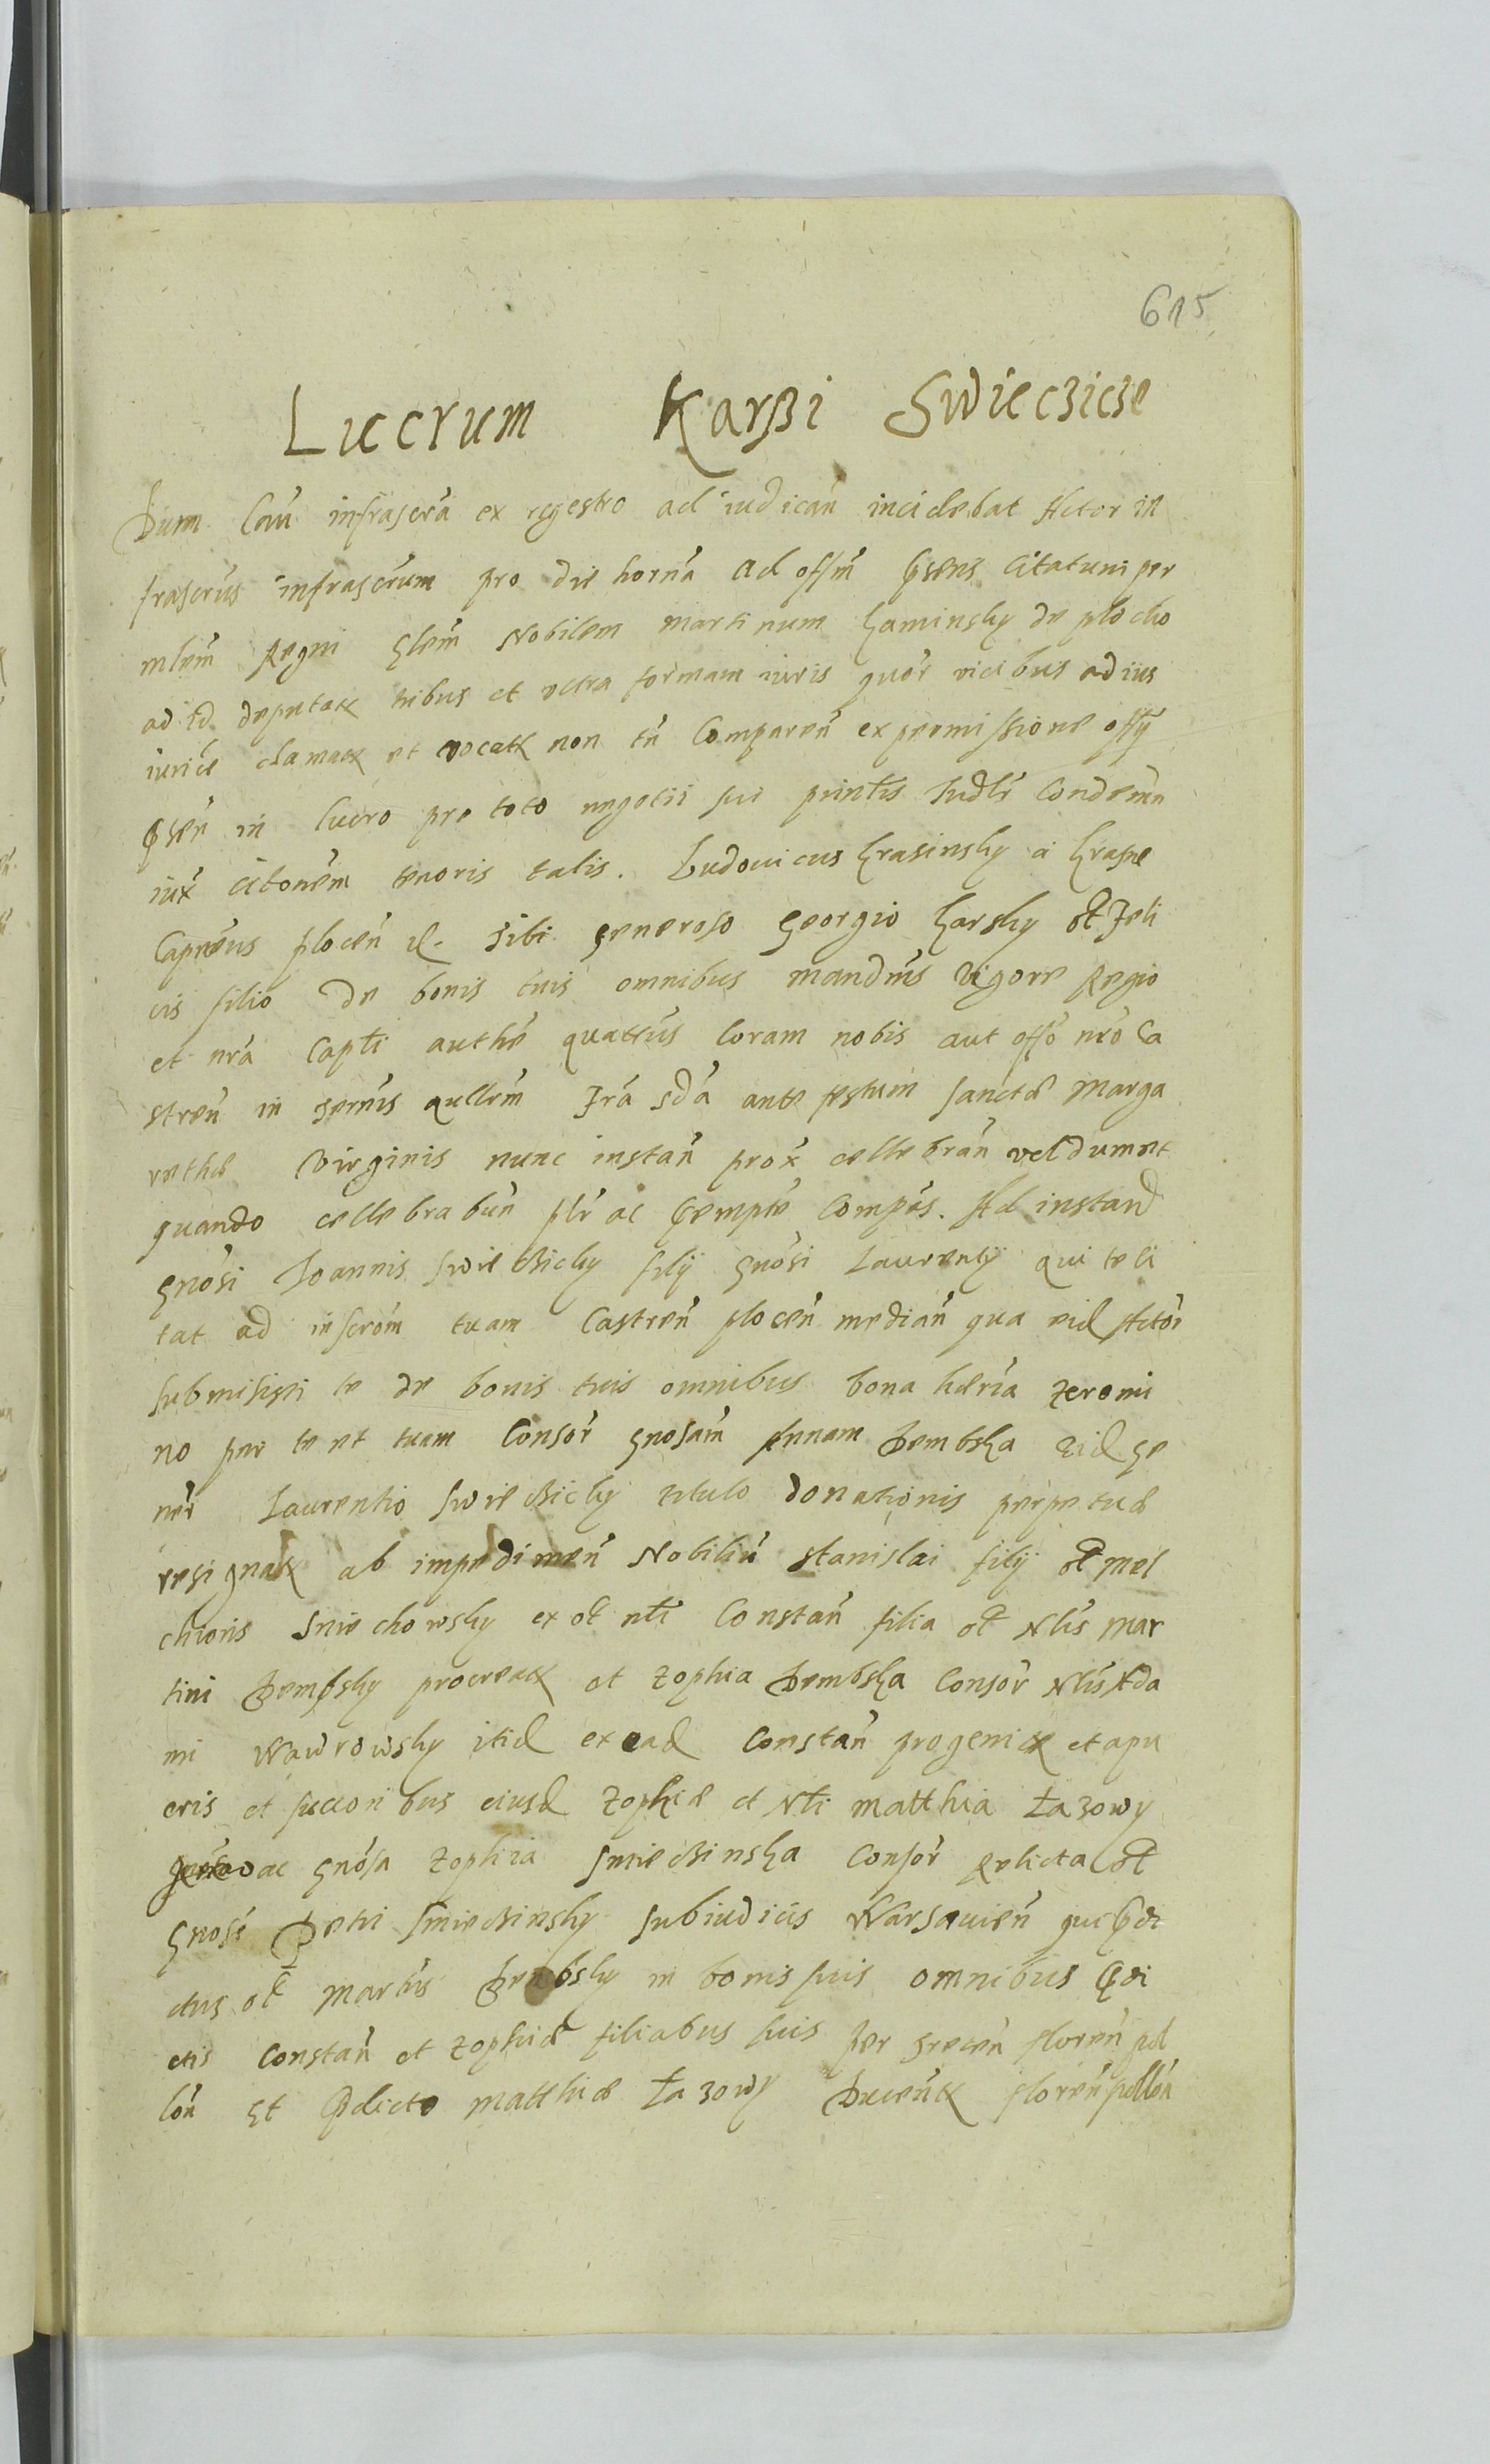 615
Luccrum Karßi Swieczicze
Dum Cau infrascra ex regestro ad iudican incidebat Actor in
frascrus infrascrum pro die horna ad offm psens citatum per
mlem Regni glem Nobilem Martinum Kaminsky de plocho
ad id deputatx tribus et vltra formam iuris quor vicibus ad ius
iurice clamatx et vocatx non tn Comparen ex permissione offy
psen in lucro pro toto negotii sui printis Iudlr Condemn
iux citonem tenoris talis. Ludouicus Krasinsky a Krasne
Capneus plocen etc. Tibi generoso Georgio Karsky ol Feli
cis filio de bonis tuis omnibus mandms vigore Regio
et nra Capli authe quattus Coram nobis aut offo nro Ca
stren in termis qullrm Fra sda ante festum sanctæ Marga
rethæ Virginis nunc instan prox cellebran vel dum et
quando cellebrabun plr ac pempte Compas. Ad instan
gnosi Ioannis Swieczicky filij gnosi Laurentij qui te ci
tat ad inscrom tuam Castren plocen median qua eid Actor
submisisti te de bonis tuis omnibus bona hæria Zeromi
no per te et tuam Consor gnosam Annam Dembska eid ge
ner Laurentio Swieczicky titulo donationis perpetuæ
resignatx ab impedimen Nobiliu Stanislai filij ol Mel
chioris Sniechowsky ex ol nli Constan filia ol Nlis Mar
tini Dembsky procreatx et Zophia Dembska Consor Nlis Ada
mi Wawrowsky itid ex ead Constan progenitx et a pu
eris et succoribus eiusd Zophiæ et Nli Matthia Łazowy
ac gnosa Zophia Smieczinska Consor Relicta ol
gnosi Petri Smieczinsky subiudicis Warsauien qui pdi
ctus ol Martinus Dembsky in bonis suis omnibus pdi
ctis Constan et Zophiæ filiabus suis per trecen floren pol
lon Et pdicto Matthiæ Łazowy Ducentx floren pollon